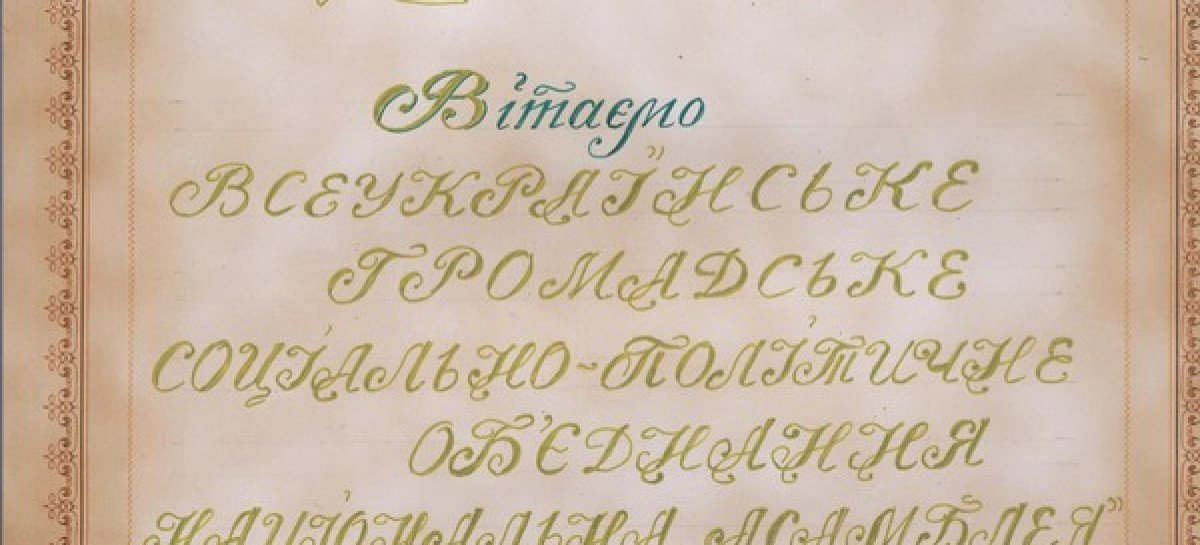 Вітаємо
ВСЕУКРАЇНСЬКЕ
ГРОМАДСЬКЕ
СОЦІАЛЬНО-ПОЛІТИЧНЕ
ОБ'ЄДНАННЯ
НАЦІОНАЛЬНА АСАМБЛЕЯ"